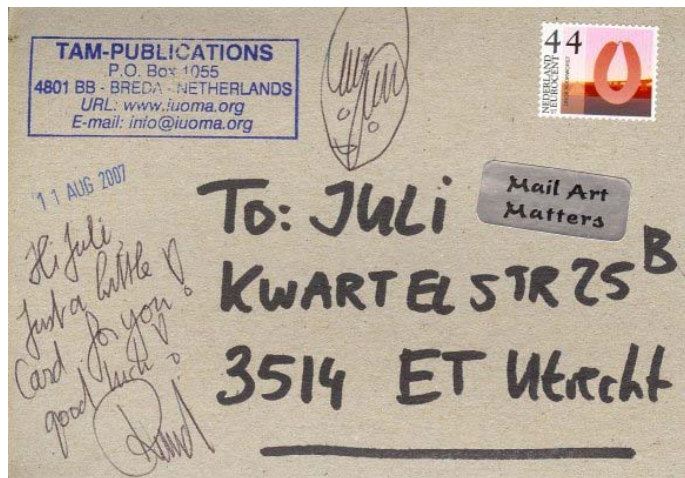 TAM-PUBLICATIONS
P.O. Box 1055
4801 BB - BREDA - NETHERLANDS
URL: www.iuoma.org
E-mail: info@iuoma.org
44
NEDERLAND
EUROCENT
11 AUG 2007
Mail Art
Matters
To: JULI
KWARTELSTR 25 B
3514 ET Utrecht
Hi Juli,
Just a little
Card for you!
good luck!
Ruud